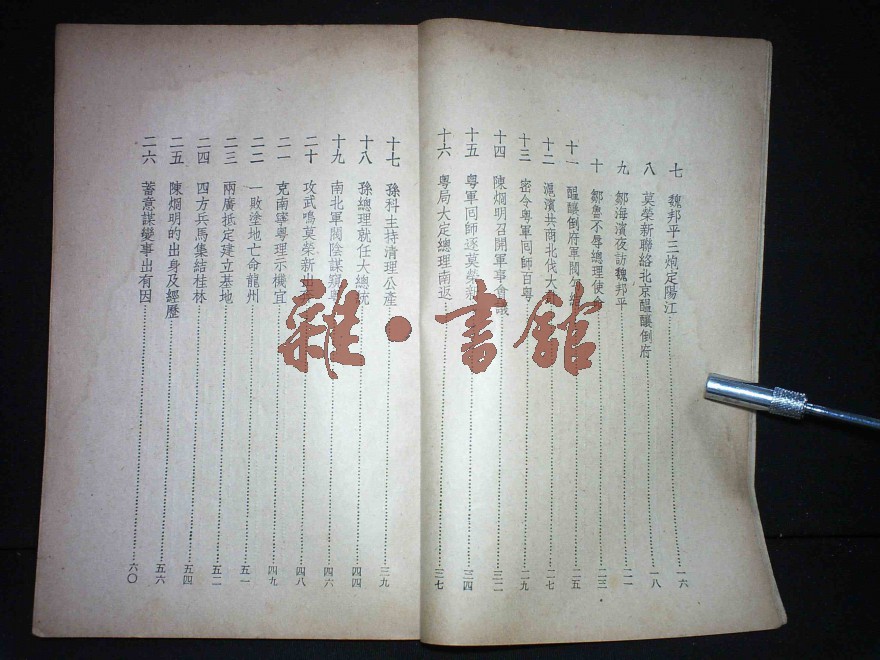 七 魏邦平三炮定陽江……一六
八 莫榮新聯絡北京醞釀倒府……一八
九 鄒海濱夜訪魏邦平……二一
十 鄒魯不辱總理使命……二三
十一 醞釀倒府軍閥……二五
十二 滬濱共商北伐大計……二七
十三 密令粵軍囘師百粵……二九
十四 陳烱明召開軍事會議……三二
十五 粵軍囘師逐莫榮新……三四
十六 粵局大定總理南返……三七
十七 孫科主持清理公產……三九
十八 孫總理就任大總統……四四
十九 南北軍閥陰謀窺粵……四六
二十 攻武鳴莫榮新出……四八
二一 克南寧粵理示機宜……四九
二二 一敗塗地亡命龍州……五一
二三 兩廣抵定建立基地……五二
二四 四方兵馬集結桂林……五四
二五 陳烱明的出身及經歷……五六
二六 蓄意謀變事出有因……六〇
雜·書館